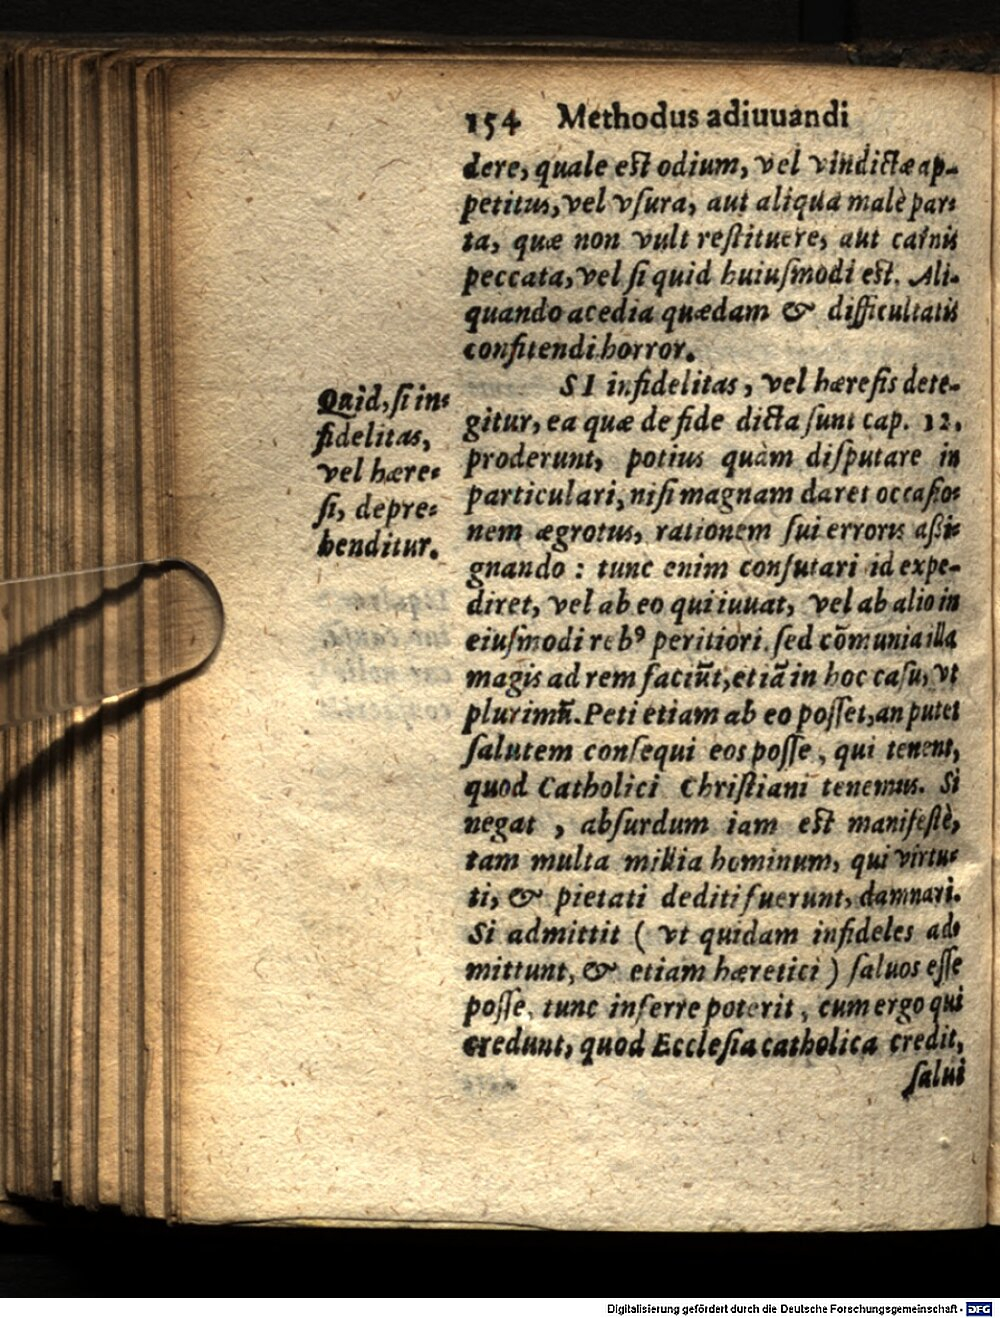 154 Methodus adiuuandi
dere, quale est odium, vel vindictæ ap-
petitus, vel vſura, aut aliqua malè par-
ta, quæ non vult reſtituere, aut carnis
peccata, vel ſi quid huiuſmodi est. Ali-
quando acedia quædam & difficultatis
confitendi horror.
SI infidelitas, vel hæreſis dete-
gitur, ea quæ de fide dicta ſunt cap. 12,
proderunt, potius quàm diſputare in
particulari, niſi magnam daret occaſio-
nem ægrotus, rationem ſui erroris aßi-
gnando : tunc enim confutari id expe-
diret, vel ab eo qui iuuat, vel ab alio in
eiuſmodi rebꝰ peritiori. ſed cõmunia illa
magis ad rem faciũt, etiã in hoc caſu, vt
plurimũ. Peti etiam ab eo poſſet, an putet
ſalutem conſequi eos poſſe, qui tenent,
quod Catholici Chriſtiani tenemus. Si
negat, abſurdum iam est manifeſtè,
tam multa millia hominum, qui virtu-
ti, & pietati dediti fuerunt, damnari.
Si admittit ( vt quidam infideles ad-
mittunt, & etiam hæretici ) ſaluos eſſe
poſſe, tunc inferre poterit, cum ergo qui
credunt, quod Eccleſia catholica credit,
ſalui
Quid, ſi in-
fidelitas,
vel hære-
ſi, depre-
henditur.
Digitalisierung gefördert durch die Deutsche Forschungsgemeinschaft - DFG